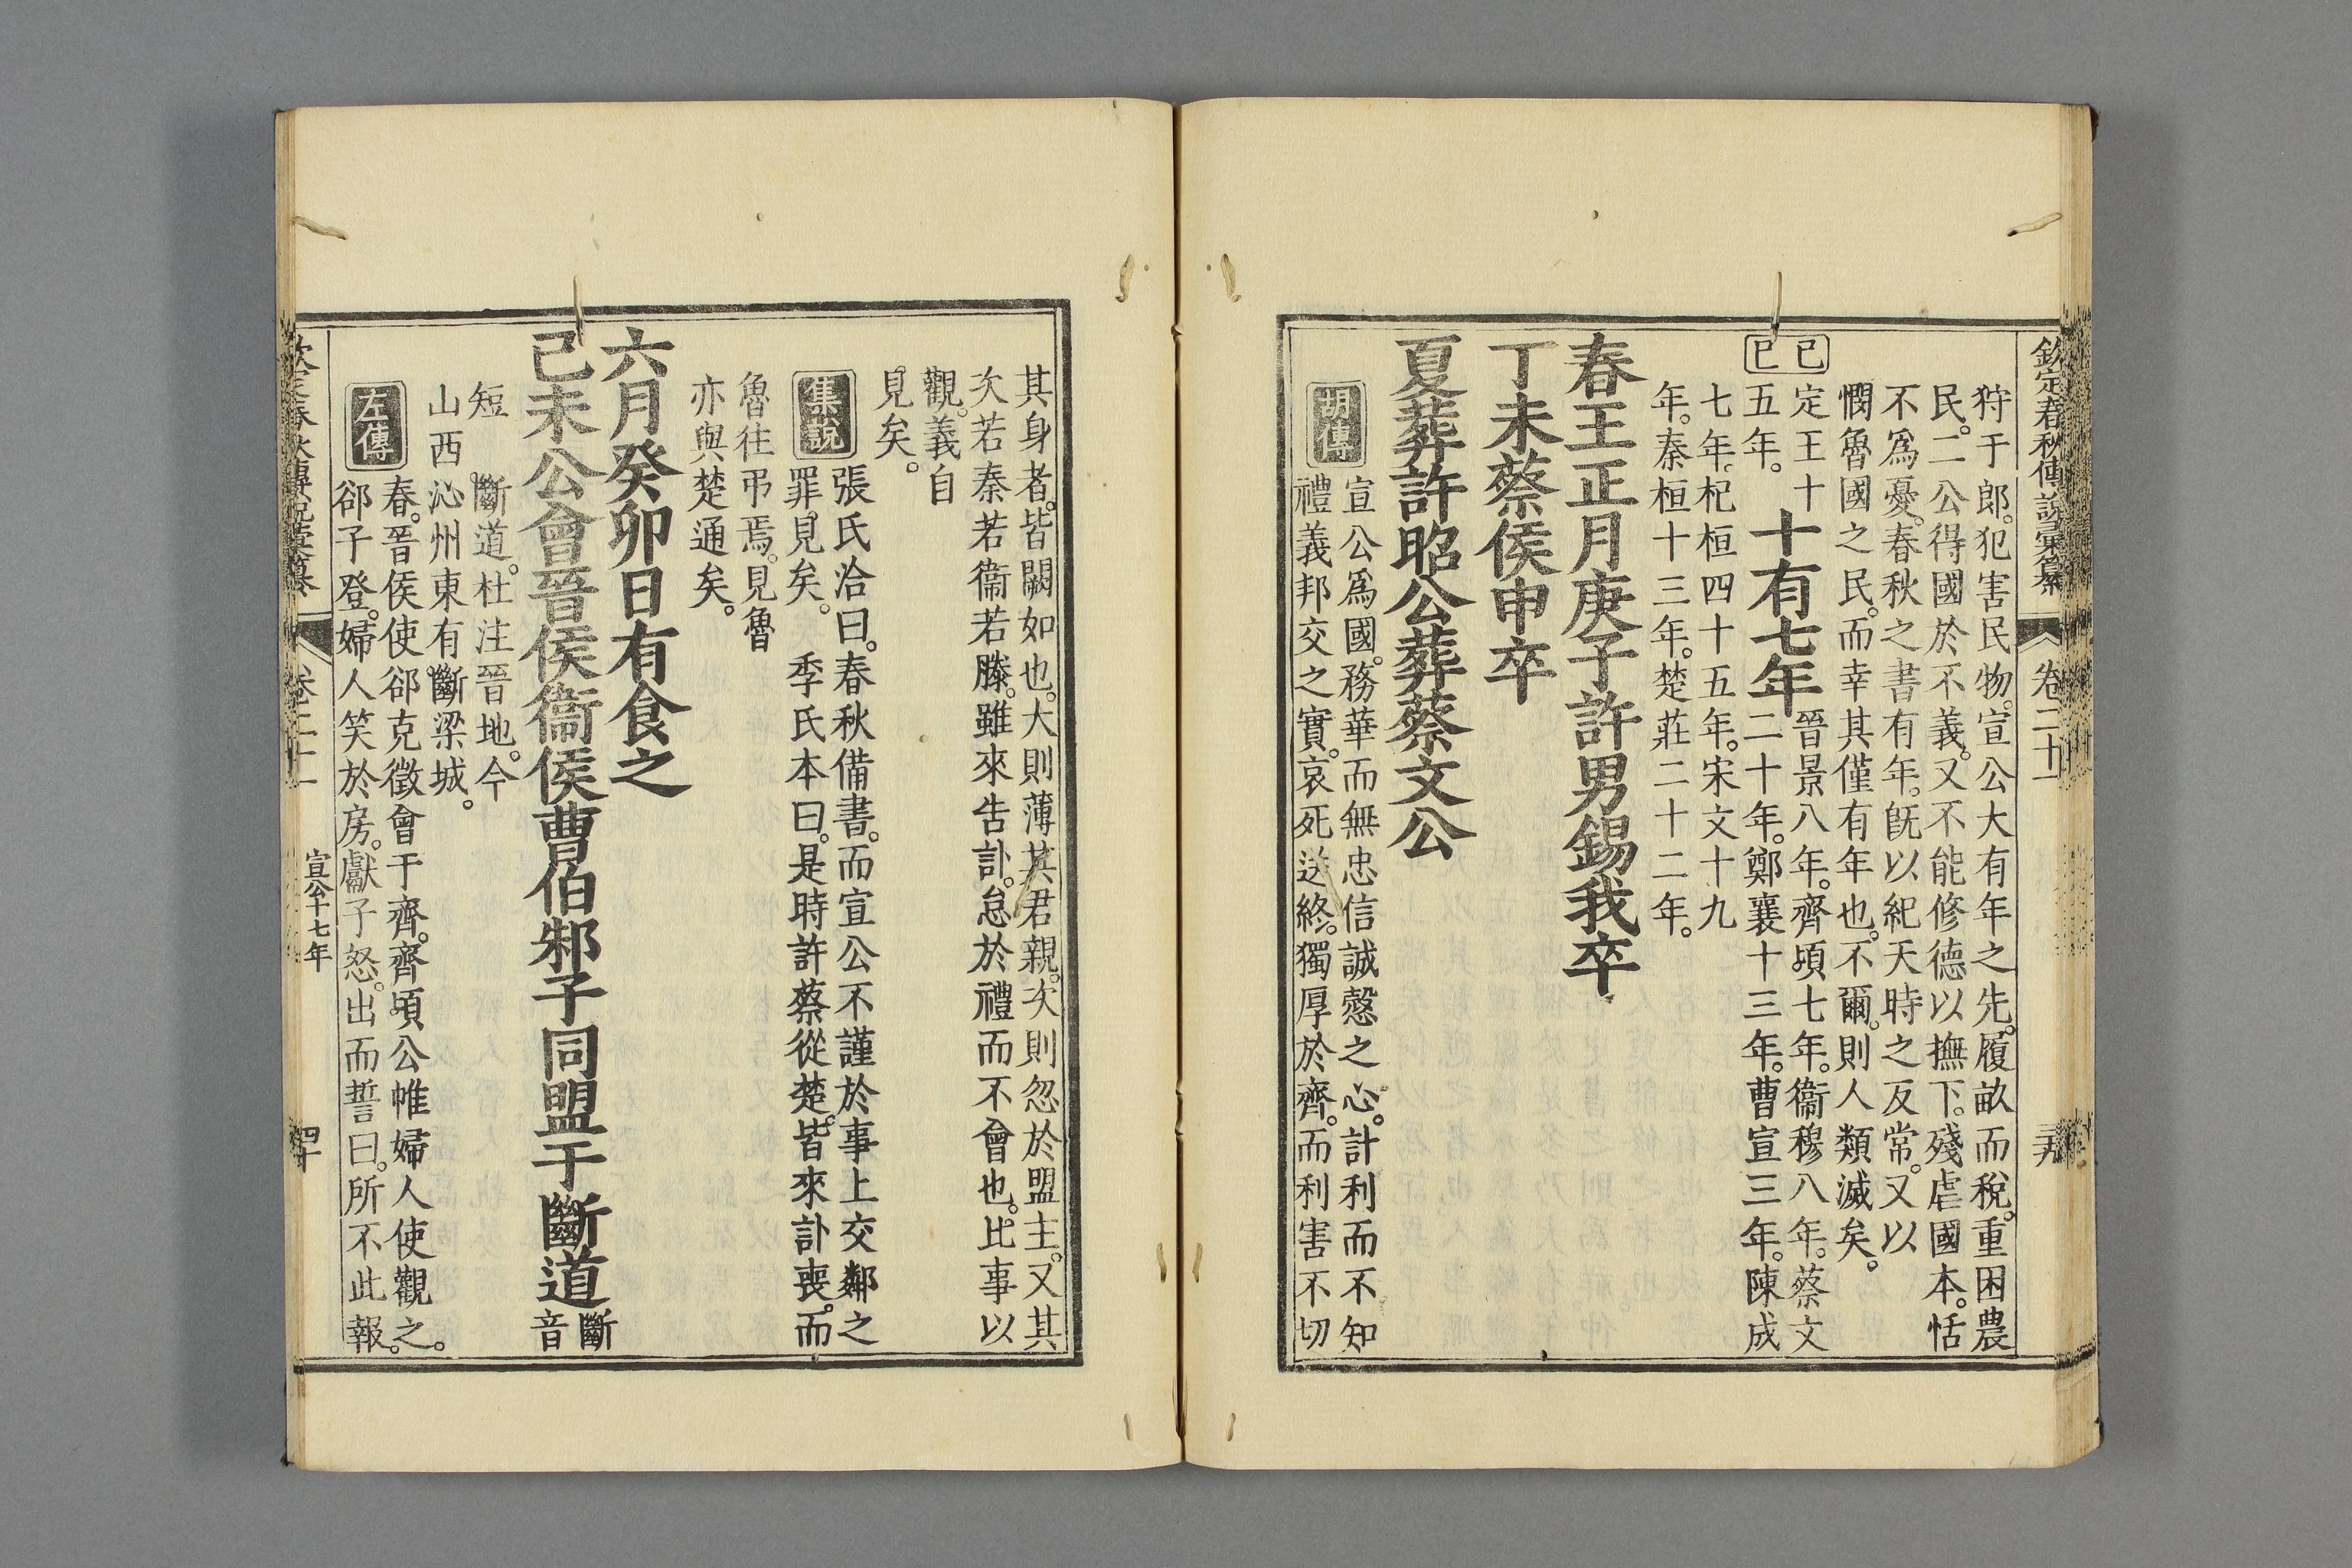 欽定春秋傳說彙纂 卷二十一 三十九
狩于郎。犯害民物。宣公大有年之先。履畝而稅。重困農
民。二公得國於不義。又不能修德以撫下。殘虐國本。恬
不爲憂。春秋之書有年。旣以紀天時之反常。又以
憫魯國之民。而幸其僅有年也。不爾。則人類滅矣。
己巳
定王十五年。
十有七年
晉景八年。齊頃七年。衞穆八年。蔡文
二十年。鄭襄十三年。曹宣三年。陳成
七年。杞桓四十五年。宋文十九
年。秦桓十三年。楚莊二十二年。
春王正月庚子許男錫我卒
丁未蔡侯申卒
夏葬許昭公葬蔡文公
胡傳
宣公爲國。務華而無忠信誠慤之心。計利而不知
禮義邦交之實。哀死送終。獨厚於齊。而利害不切
其身者。皆闕如也。大則薄其君親。次則忽於盟主。又其
次若秦若衞若滕。雖來告訃。怠於禮而不會也。比事以
觀。義自
見矣。
集說
張氏洽曰。春秋備書。而宣公不謹於事上交鄰之
罪。見矣。 季氏本曰。是時許蔡從楚。皆來訃喪。而
魯往弔焉。見魯
亦與楚通矣。
六月癸卯日有食之
己未公會晉侯衞侯曹伯邾子同盟于斷道
斷音
短
斷道。杜注晉地。今
山西沁州東有斷梁城。
左傳
春。晉侯使郤克徵會于齊。齊頃公帷婦人使觀之。
郤子登。婦人笑於房。獻子怒。出而誓曰。所不此報。
欽定春秋傳說彙纂 卷二十一 宣公十七年 四十